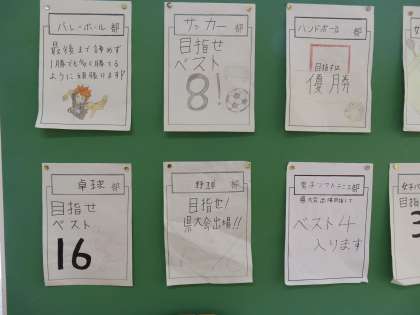 バレーボール部
最後まで諦めず
1勝でも多く勝てる
ように頑張ります!
サッカー部
目指せ
ベスト
8!
ハンドボール部
目指すは
優勝
卓球部
目指せ
ベスト
16
野球部
目指せ!
県大会出場!!
男子ソフトテニス部
県大会出場目指して
ベスト4
入ります
目指
3